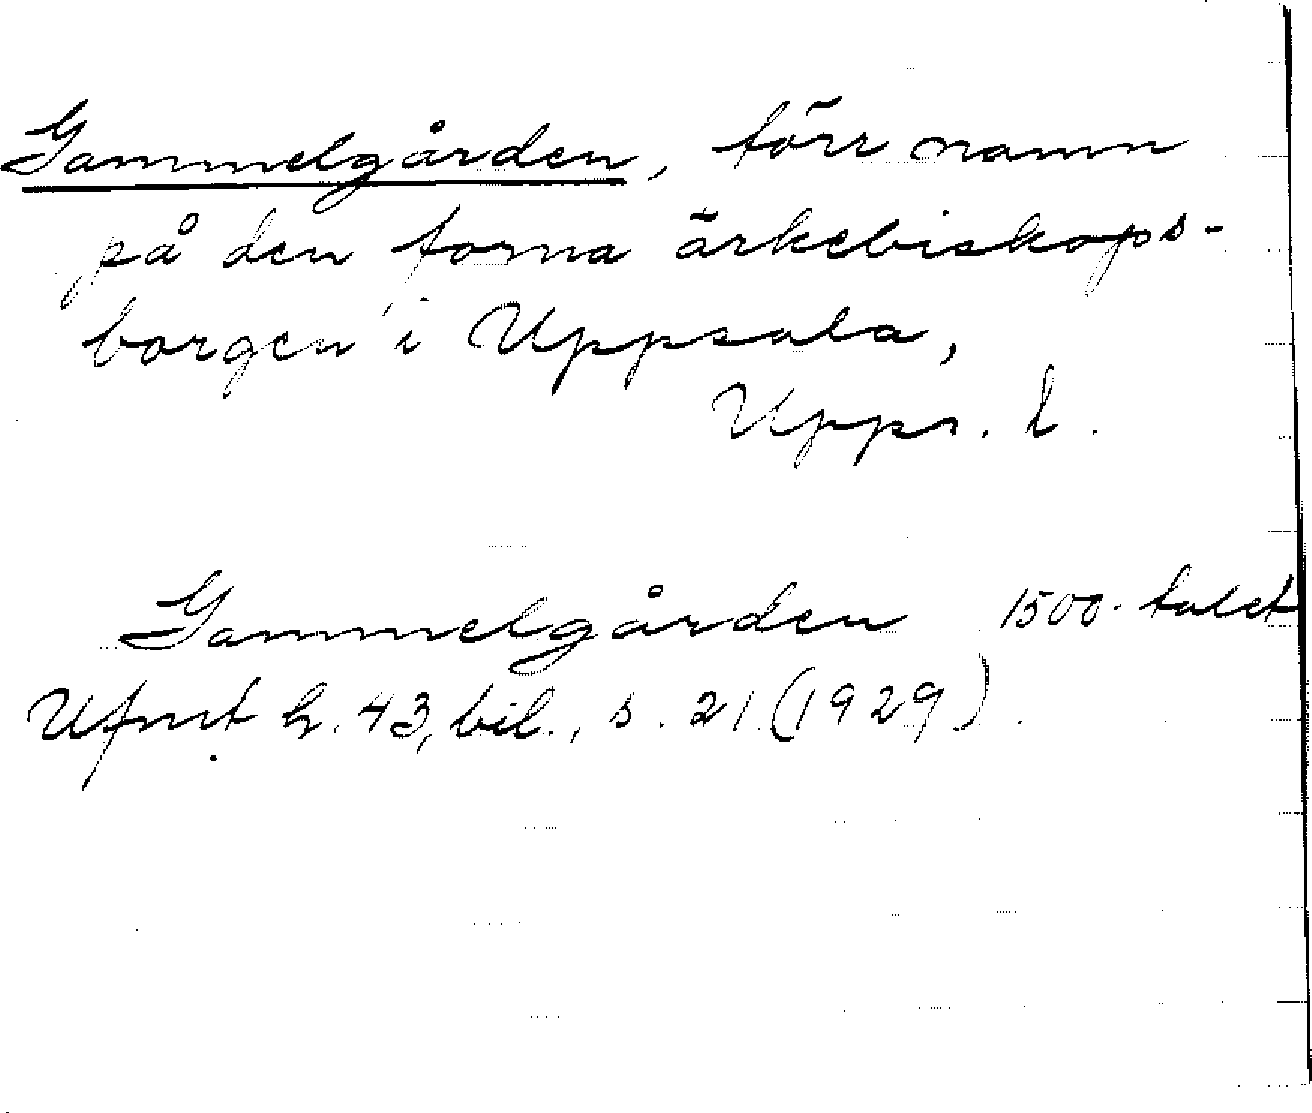 Gammelgården, förr namn
på den forna ärkebiskops-
borgen i Uppsala,
Upps. l.
Gammelgården 1500-talet
Ufmt h. 43, bil., s. 21 (1929).